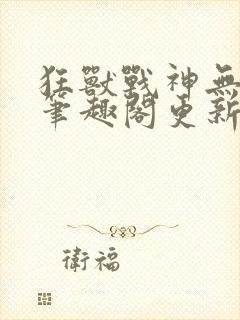 狂獸戰神無
筆趣閣更新
衛福